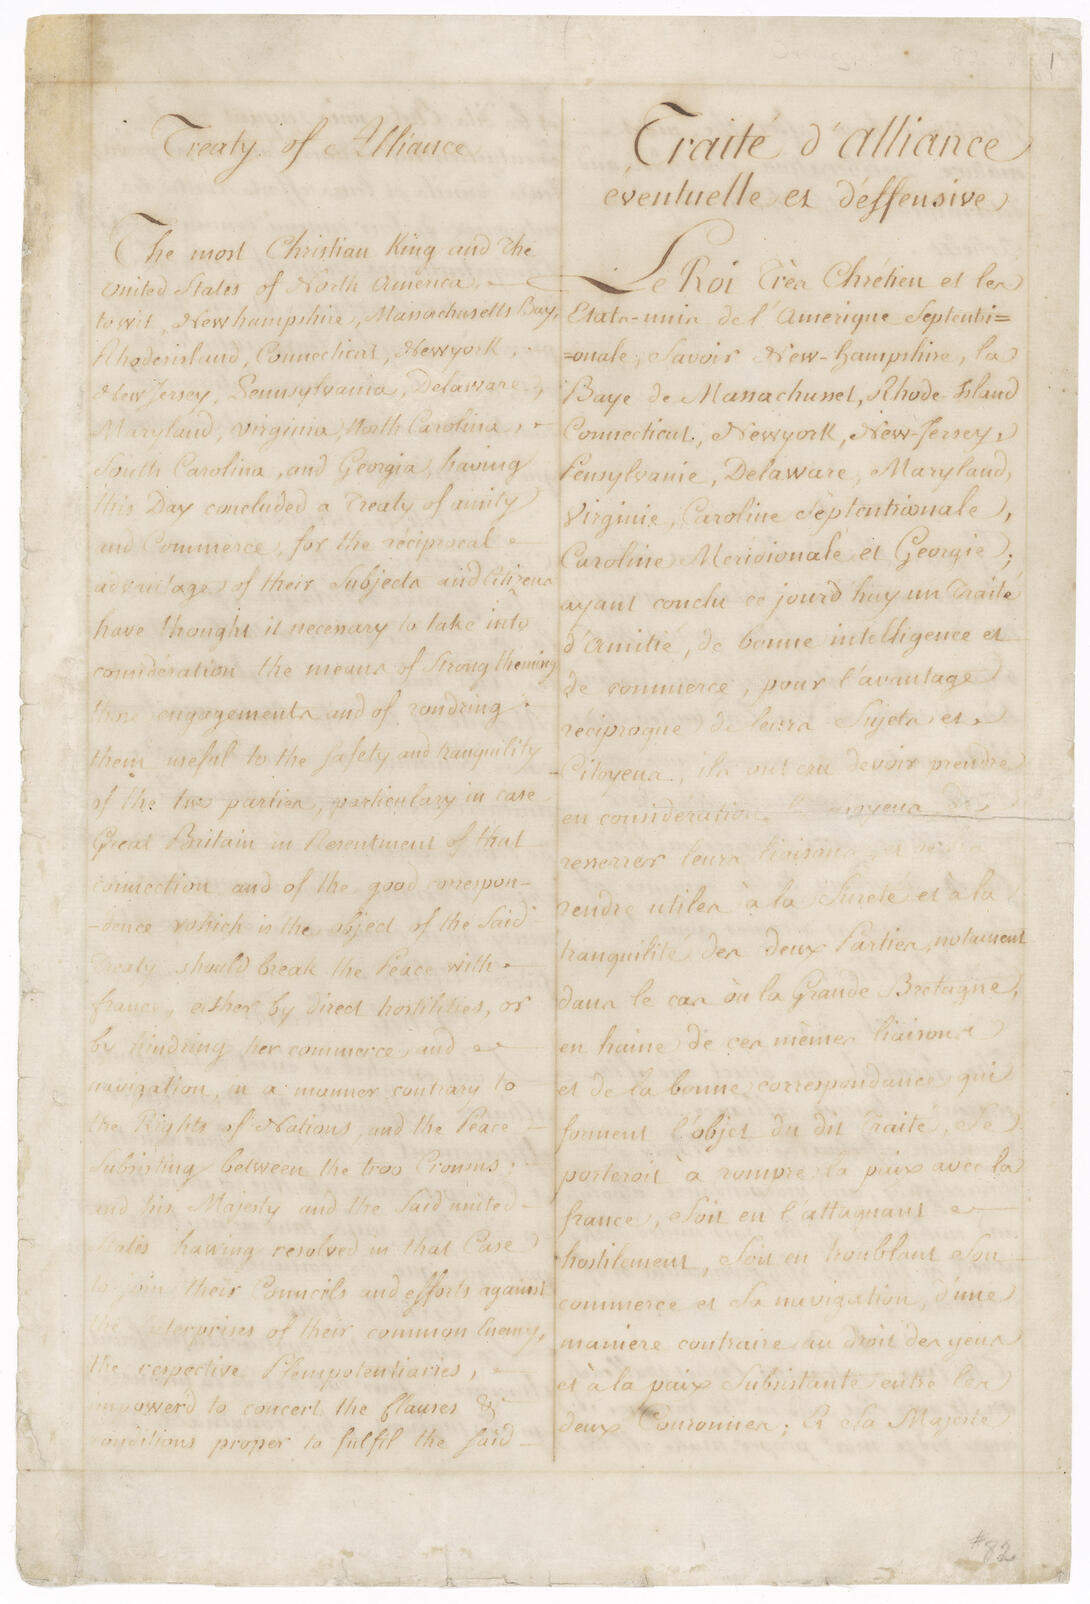 1
Treaty of Alliance
The most Christian King and the
united States of North America,
to wit, Newhampshire, Massachusetts Bay,
Rhodesisland, Connecticut, Newyork,
New Jersey, Pennsylvania, Delaware,
Maryland, Virginia, North Carolina,
South Carolina, and Georgia, having
this Day concluded a Treaty of amity
and Commerce, for the reciprocal
advantage of their Subjects and Citizens
have thought it necessary to take into
consideration the means of Strongthening
those engagements and of rondring
them useful to the safety and tranquility
of the two parties, particulary in case
Great Britain in Resentment of that
connection and of the good correspon-
-dence which is the object of the Said
Treaty should break the Peace with
france, either by direct hostilities, or
by hindring her commerce and
navigation, in a manner contrary to
the Rights of Nations, and the Peace
Subsisting between the two Crowns,
and his Majesty and the Said united
States having resolved in that Case
to join their Councils and efforts against
the enterprises of their common Enemy,
the respective Plenipotentiaries,
impower'd to concert the Clauses &
conditions proper to fulfil the said
Traité d'alliance
éventuelle et déffensive
Le Roi Très Chrétien et les
Etats-unis de l'Amerique Septentri=
=onale, Savoir New-hampshire, la
Baye de Massachusset, Rhode-Island
Connecticut, Newyork, New-Jersey,
Pensylvanie, Delaware, Maryland,
Virginie, Caroline Septentrionale,
Caroline Meridionale et Georgie;
ayant conclu ce jourd'huy un Traité
d'Amitié, de bonne intelligence et
de commerce, pour l'avantage
réciproque de leurs Sujets et
Citoyens, ils ont cru devoir prendre
en consideration les moyens de
resserrer leurs liaisons, et de les
rendre utiles à la Sureté et à la
tranquilité des deux Parties, notament
dans le cas où la Grande Bretagne,
en haine de ces mêmes liaisons
et de la bonne correspondance qui
forment l'objet du dit Traité, Se
porteroit à rompre la paix avec la
france, Soit en l'attaquant
hostilement, Soit en troublant Son
commerce et Sa navigation, d'une
maniere contraire au droit des gens
et à la paix Subsistante entre les
deux Couronnes; Et Sa Majesté
#82